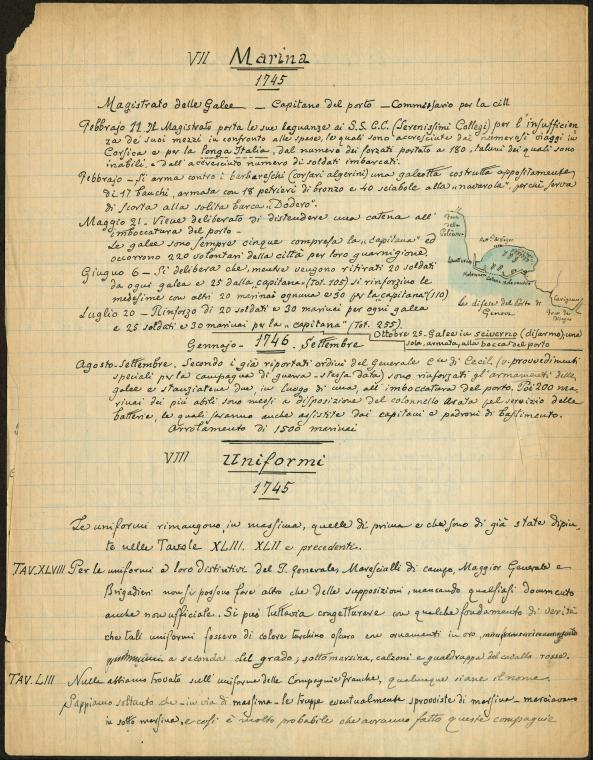 VII Marina
1745
Magistrato delle Galee — Capitano del porto — Commissario per la
Febbrajo 11. Il Magistrato porta le sue lagnanze ai S.S. C.C. (Serenissimi Collegi) per l'insufficien
za de' suoi mezzi in confronto alle spese, le quali sono accresciute dai numerosi viaggi in
Corsica e per la longa Italia, dal numero dei forzati portato a 180, taluni dei quali sono
inabili, e dall'accresciuto numero di soldati imbarcati.
Febbrajo — Si arma contro i barbareschi (corsari algerini) una galeotta costrutta appositamente
di 17 banchi, armata con 18 petrieri di bronzo e 40 sciabole alla perchè serva
di scorta alla solita barca
Maggio 21 — Viene deliberato di distendere una catena all'
imboccatura del porto —
Le galee sono sempre cinque compresa la „capitana" ed
occorrono 220 volontari della città per loro guarnigione.
Giugno 6 — Si delibera che, mentre vengono ritirati 20 soldati
da ogni galea e 25 dalla capitana (Tot. 105) si rinforzino le
medesime con altri 20 marinai ognuna e 30 per la capitana (110)
Luglio 20 — Rinforzo di 20 soldati e 30 marinai per ogni galea
e 25 soldati e 30 marinai per la „capitana" (Tot. 255).
Le difese del Porto di
Genova
Carignano
Ottobre 25 — Galee in sciverno (disarmo), una
sola, armata, alla bocca del porto
Gennajo — 1746. Settembre
Agosto-Settembre. Secondo i già riportati ordini del Generale De Cecil (v. provvedimenti
speciali per la campagna di guerra — stessa data) sono rinforzati gl'armamenti delle
galee e stanziatene due, in luogo di una, all'imboccatura del porto. Poi 200 ma
rinai dei più abili sono messi a disposizione del colonnello Arata pel servizio delle
batterie, le quali saranno anche assistite dai capitani e padroni di bastimento.
Arrolamento di 1500 marinai
VIII Uniformi
1745
Le uniformi rimangono, in massima, quelle di prima e che sono di già state dipin
te nelle Tavole XLIII. XLII e precedenti.
TAV. XLVIII Per le uniformi e loro distintivi del T. Generale, Marescialli di campo, Maggior Generale e
Brigadieri non si possono fare altro che delle supposizioni, mancando qualsiasi documento
anche non ufficiale. Si può tuttavia congetturare con qualche fondamento di verità
che tali uniformi fossero di colore turchino oscuro con ornamenti in oro,
a seconda del grado, sottomarsina, calzoni e gualdrappa del cavallo rosse.
TAV. LIII Nulla abbiamo trovato sull'uniforme delle Compagnie franche, qualunque siane il nome.
Sappiamo soltanto che — in via di massima — le truppe eventualmente sprovviste di marsina — marciavano
in sotto marsina, e così è molto probabile che avranno fatto queste compagnie